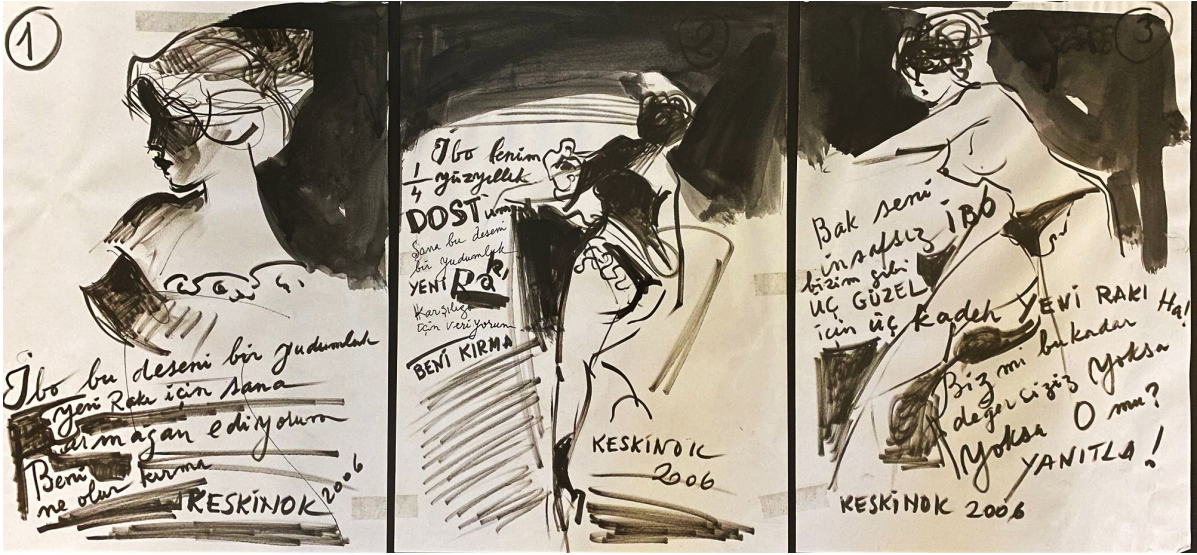 1
İbo bu deseni bir yudumluk
yeni Rakı için sana
armağan ediyorum
Beni
ne olur kırma
KESKİNOK 2006
2
İbo benim
1/4 yüzyıllık
DOSTum
Sana bu deseni
bir yudumluk
YENİ Rakı
Karşılığı
için veriyorum
BENİ KIRMA
KESKİNOK
2006
3
Bak seni
insafsız İBO
bizim gibi
ÜÇ GÜZEL
için üç kadeh YENİ RAKI Ha!
Biz mi bu kadar
değersiziz yoksa
yoksa O mu?
YANITLA!
KESKİNOK 2006